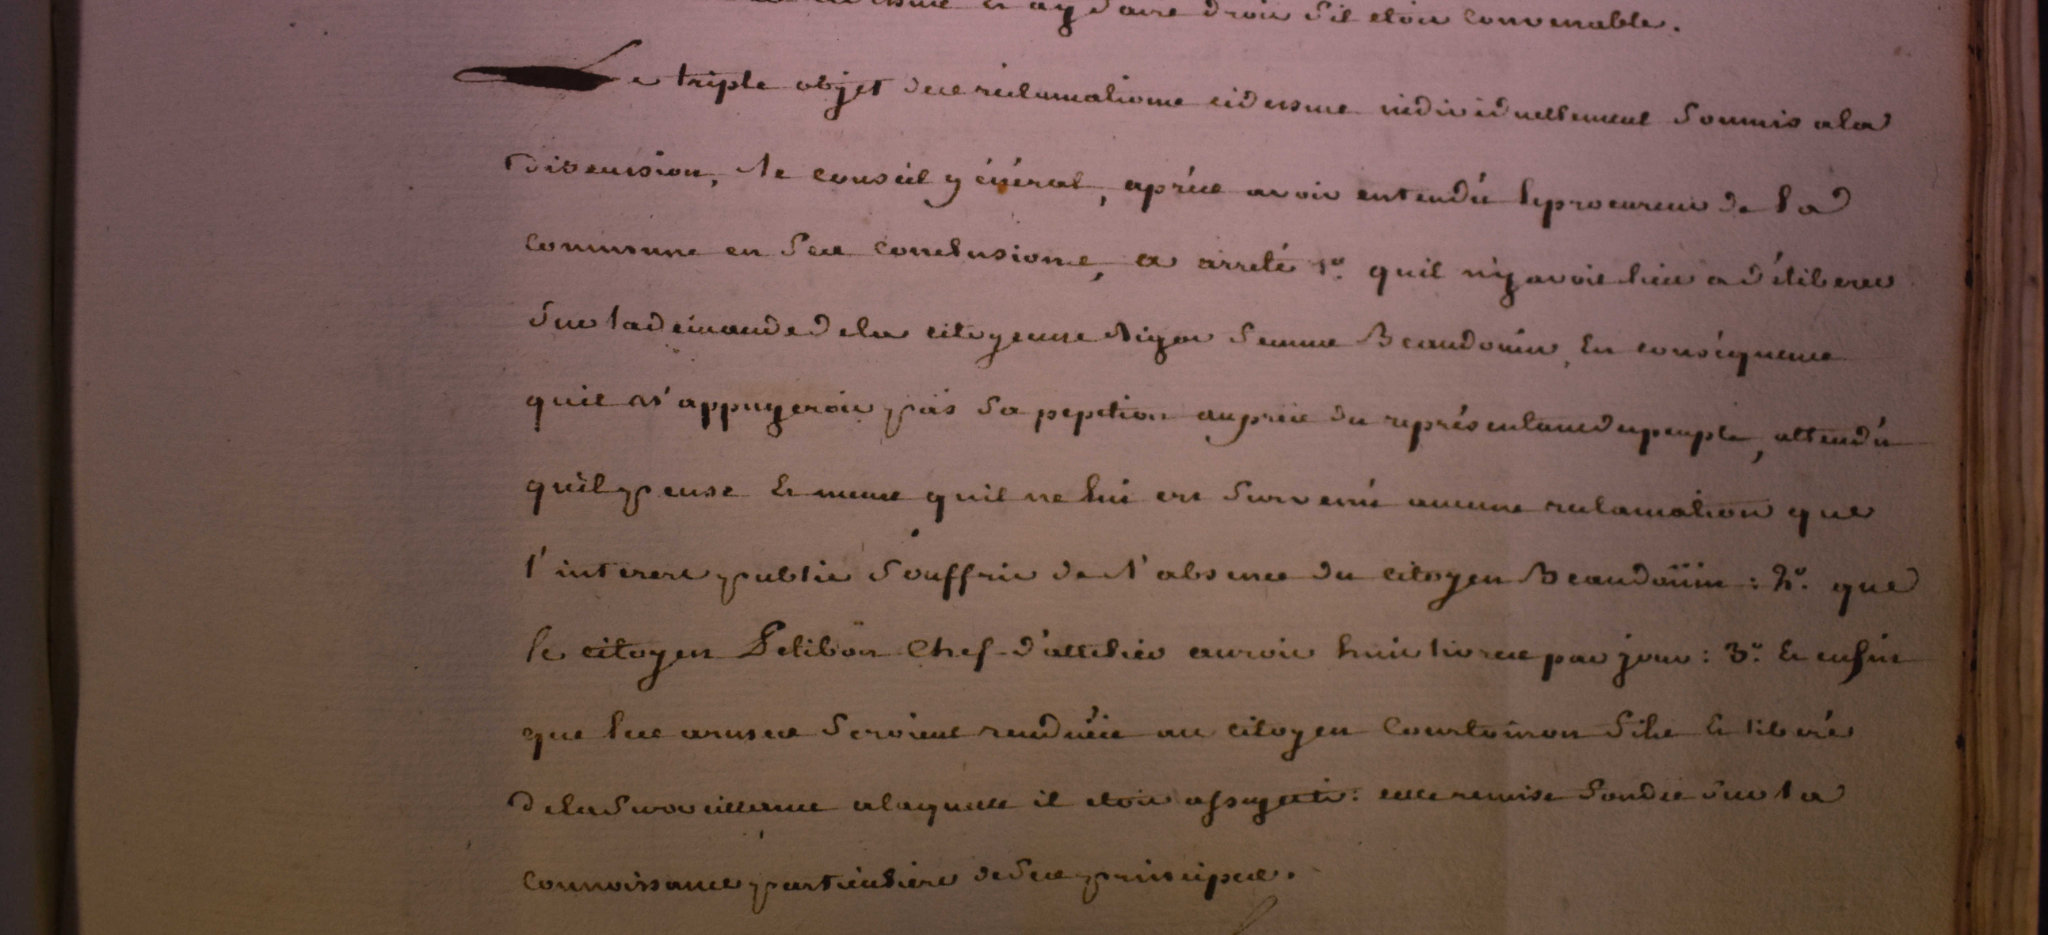 et ay daire droit s'il etoit convenable.
Le triple objet des reclamations cidessus individuellement soumis ala
discussion, le conseil général, après avoir entendû le procureur de la
commune en ses conclusions, a arreté 1°. quil n'y avoit lieu a déliberer
sur la demande de la citoyenne femme Beaudouin, En conséquence
quil n'appuyeroit pas sa petition auprès du représentant du peuple, attendû
quil pense Et meme quil ne lui est survenû aucune reclamation que
l'interest public souffrit de l'absence du citoyen Beaudoüin : 2°. que
le citoyen Petibon Chef d'attelier auroit huit livres par jour : 3°. Et enfin
que les armes seroient renduës au citoyen Courtoiron fils Et liberé
de la surveillance a laquelle il etoit assujetti : cette remise fondée sur la
connoissance particuliere de ses principes.